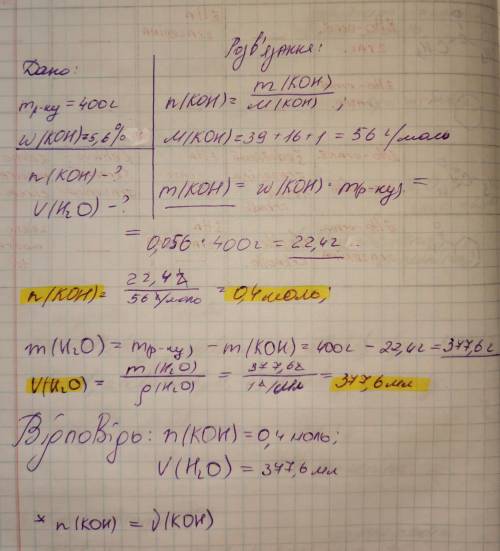 Розв'язання:
Дано:
mр-ну = 400г
w(KOH)=5,6%
n(KOH) - ?
V(H₂O) - ?
n(KOH) = m(KOH) / M(KOH) ;
M(KOH) = 39 + 16 + 1 = 56 г/моль
m(KOH) = w(KOH) · mр-ну =
= 0,056 · 400г = 22,4г
n(KOH) = 22,4г / 56 г/моль = 0,4 моль;
m(H₂O) = mр-ну - m(KOH) = 400г - 22,4г = 377,6г
V(H₂O) = m(H₂O) / ρ(H₂O) = 377,6г / 1г/мл = 377,6 мл
Відповідь: n(KOH) = 0,4 моль;
V(H₂O) = 377,6 мл
* n(KOH) = ν(KOH)